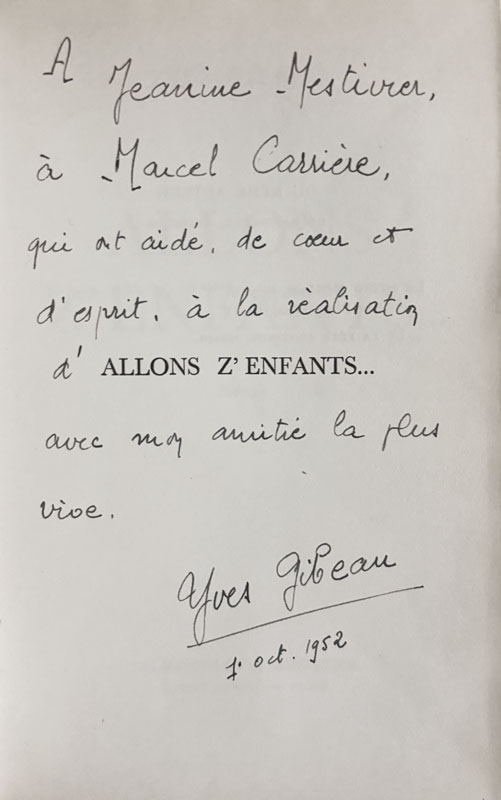 A Jeanine Mestivier,
à Marcel Carrière,
qui ont aidé, de cœur et
d'esprit, à la réalisation
d' ALLONS Z' ENFANTS...
avec mon amitié la plus
vive.
Yves Gibeau
7. oct. 1952